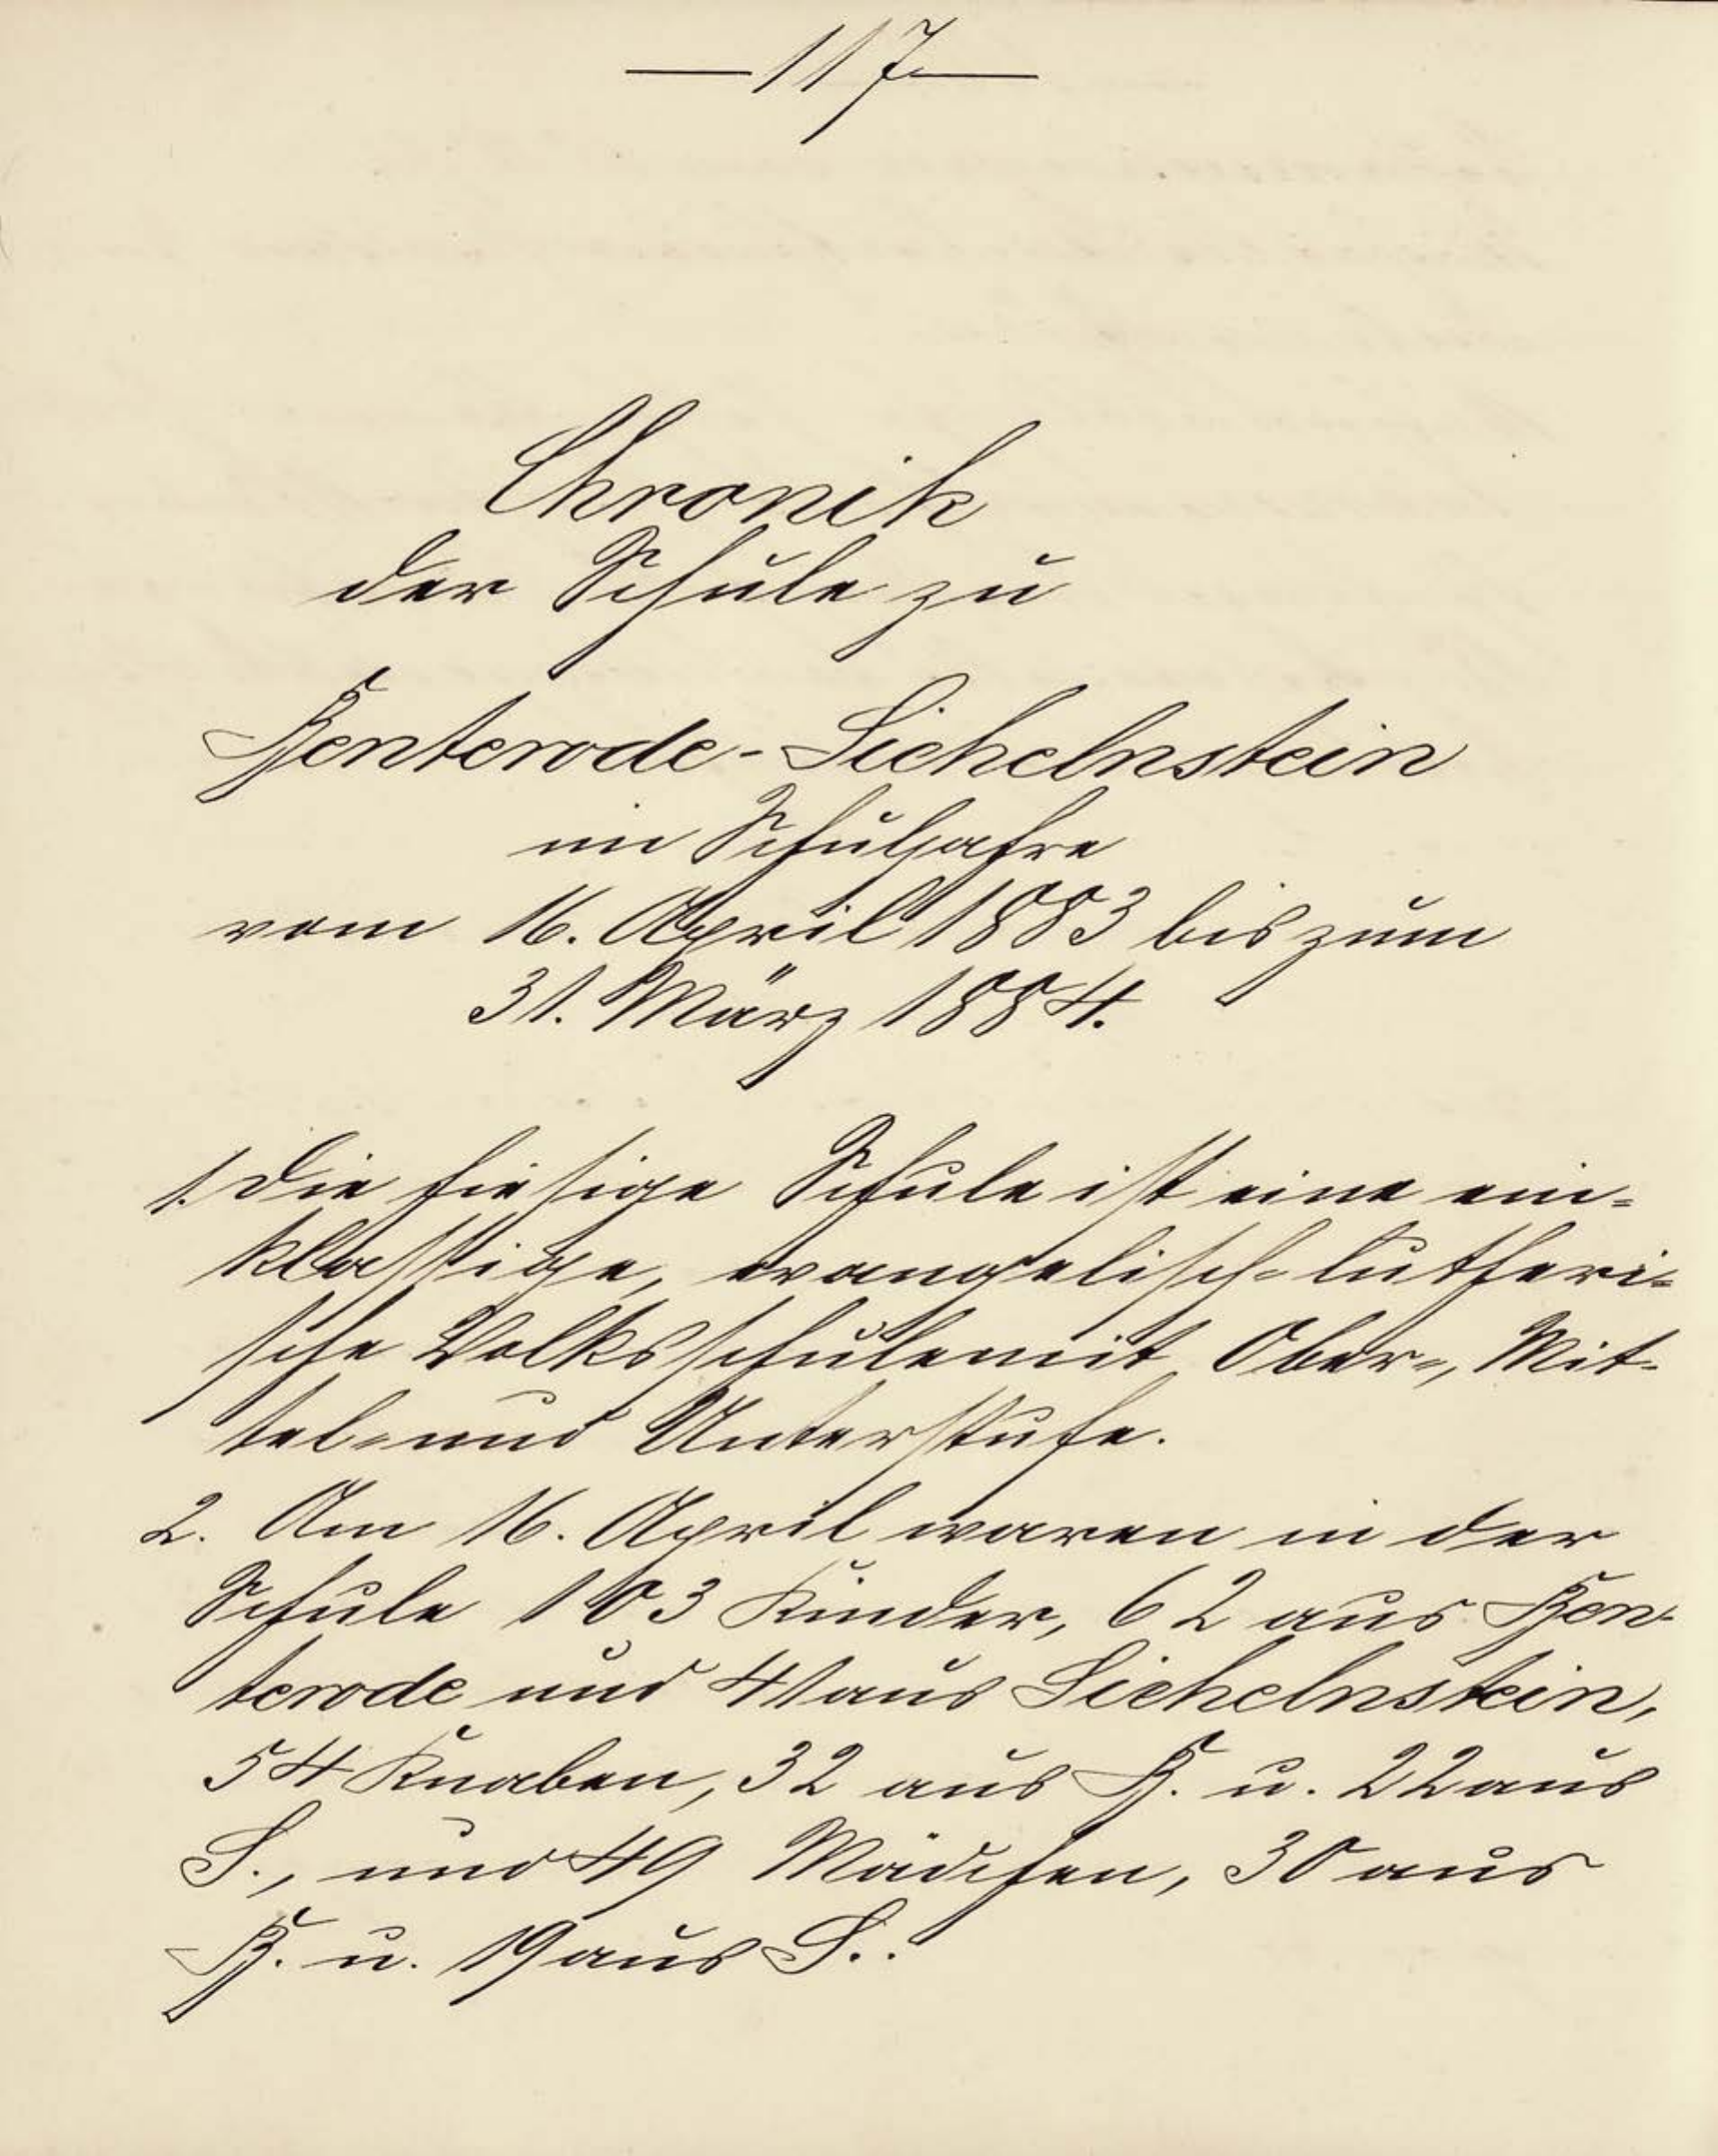 —117—
Chronik
der Schule zu
Benterode-Sichelnstein
im Schuljahre
vom 16. April 1883 bis zum
31. März 1884.
1. Die hiesige Schule ist eine ein=
klassige, evangelisch-lutheri=
sche Volksschule mit Ober=, Mit=
tel= und Unterstufe.
2. Am 16. April waren in der
Schule 103 Kinder, 62 aus Ben=
terode und 41 aus Sichelnstein,
54 Knaben, 32 aus B. u. 22 aus
S., und 49 Mädchen, 30 aus
B. u. 19 aus S..